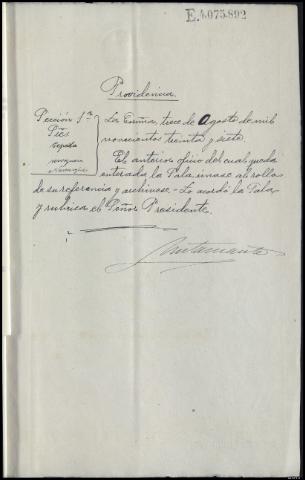 E.4.075.892
Providencia.
Sección 1ª
Sres
La Coruña, trece de Agosto de mil
novecientos treinta y siete.
El anterior oficio del cual queda
enterada la Sala únase al rollo
de su referencia y archívese.- Lo acordó la Sala
y rubrica el Señor Presidente.